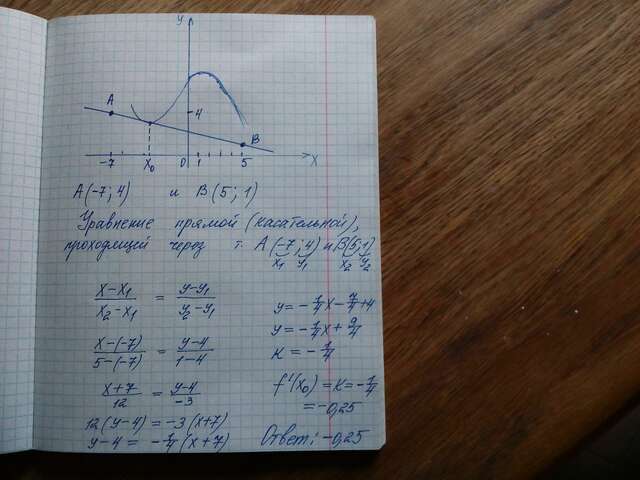 y
A
4
B
-7 x₀ 0 1 5 x
A(-7; 4) и B(5; 1)
Уравнение прямой (касательной),
проходящей через т. A(-7; 4) и B(5; 1)
x₁ y₁ x₂ y₂
(x-x₁)/(x₂-x₁) = (y-y₁)/(y₂-y₁)
(x-(-7))/(5-(-7)) = (y-4)/(1-4)
(x+7)/12 = (y-4)/-3
12(y-4) = -3(x+7)
y-4 = -1/4(x+7)
y = -1/4x - 7/4 + 4
y = -1/4x + 9/4
K = -1/4
f'(x₀) = K = -1/4
= -0,25
Ответ: -0,25